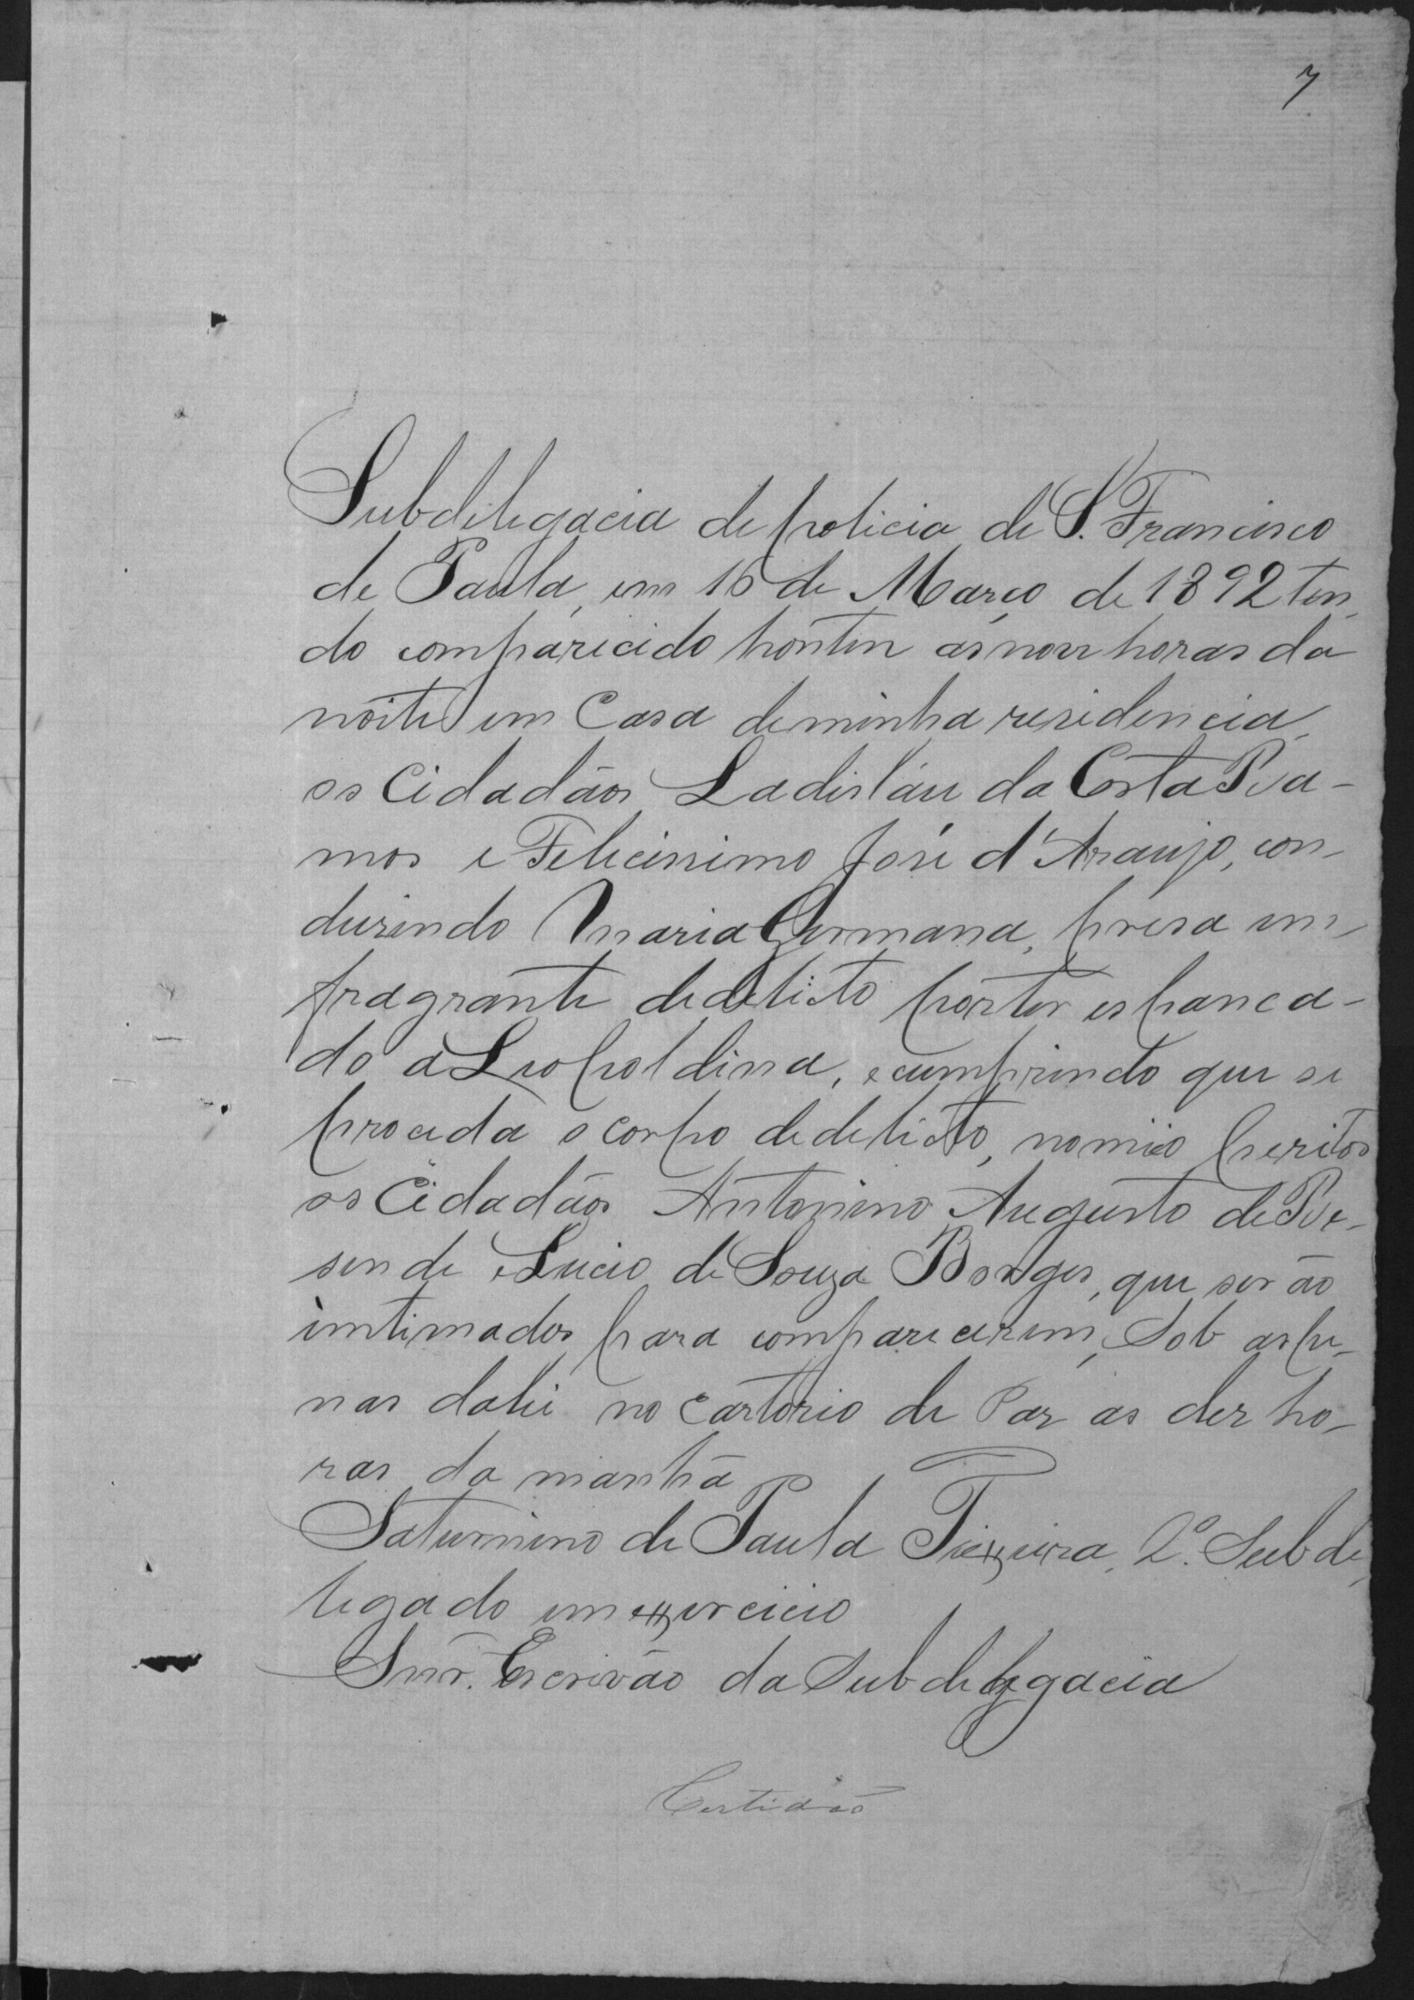 7
Subdelegacia de policia de S. Francisco
de Paula, em 16 de Março de 1892 ten
do comparecido hontem ás nove horas da
noite em Casa de minha residencia
os Cidadãos Ladisláu da Costa Ra-
mos e Felicissimo José d'Araujo, con-
duzindo Maria Germana, presa em
fragrante de delicto por ter espanca-
do a Leopoldina, e cumprindo que se
proceda o corpo de delicto, nomeio peritos
os Cidadãos Antonino Augusto de Re-
sende e Lucio de Souza Borges, que serão
intimados para comparecerem, Sob as pe-
nas da lei no cartorio de Paz as dez ho-
ras da manhã
Saturnino de Paula Teixeira, 2º. Subde
legado em exercicio
Snr. Escrivão da Subdelegacia
Certidão